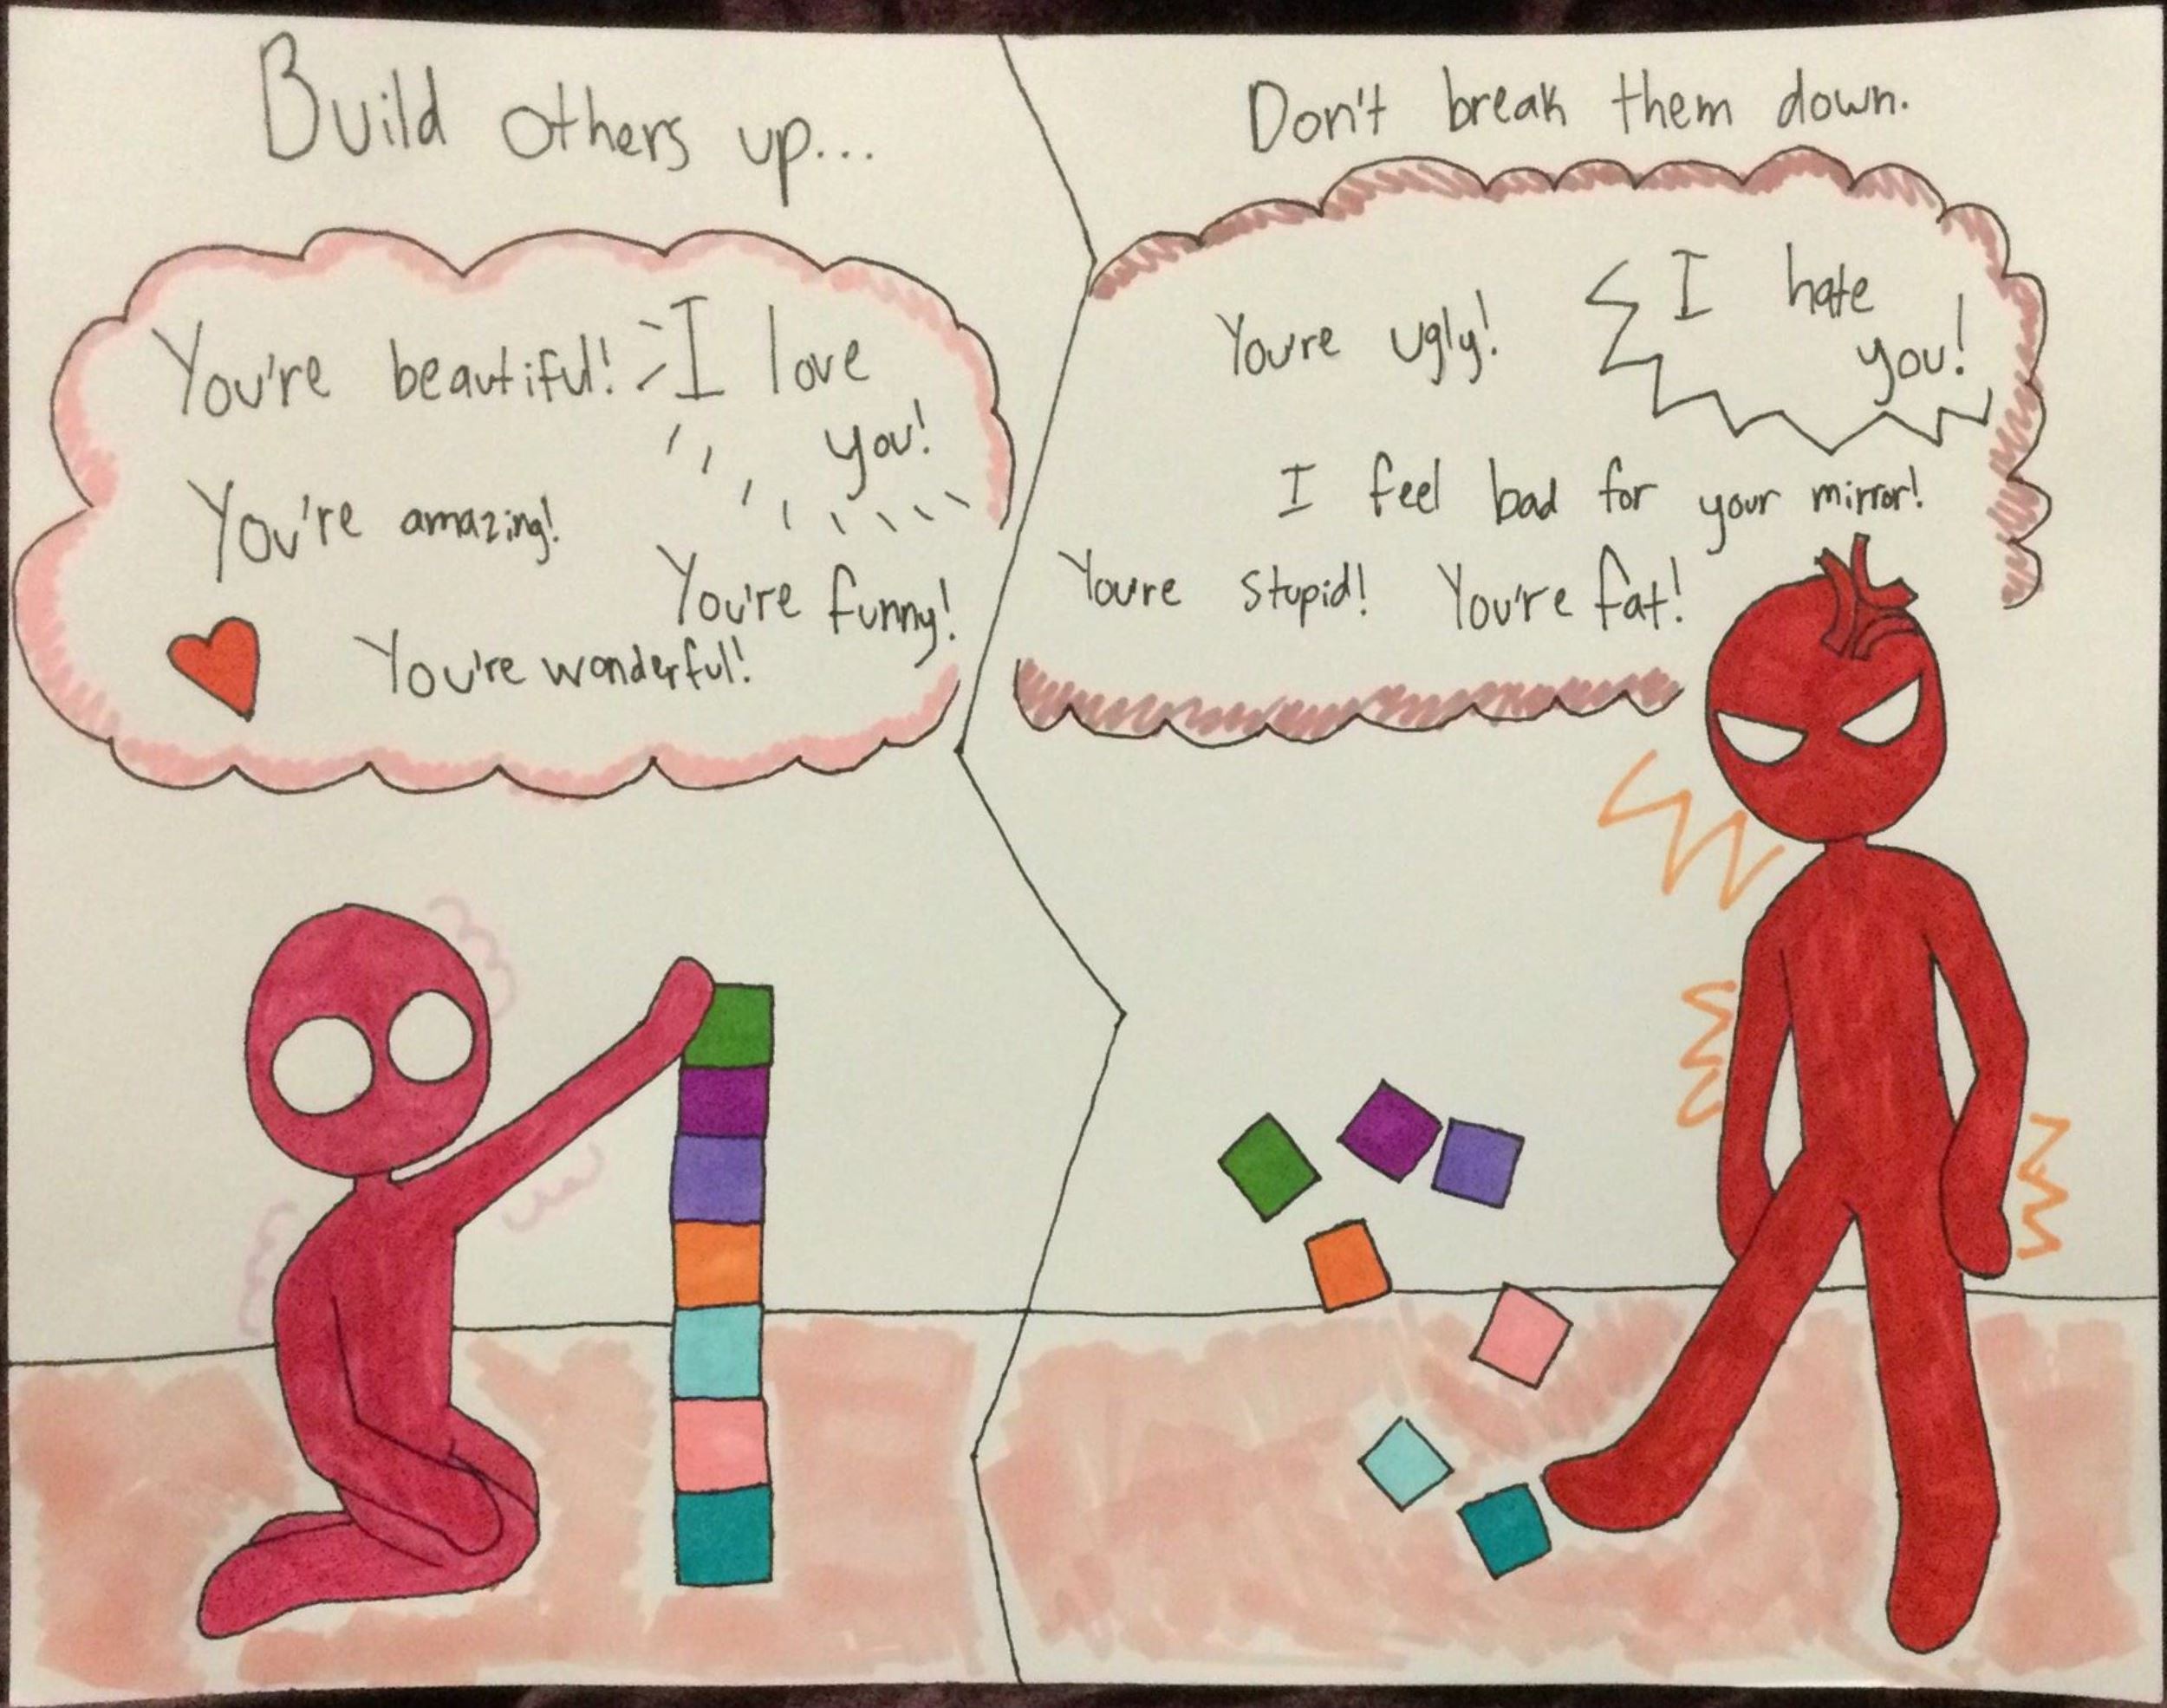 Build others up...
You're beautiful!
I love
you!
You're amazing!
You're funny!
You're wonderful!
Don't break them down.
You're ugly!
I hate
you!
I feel bad for your mirror!
You're stupid! You're fat!